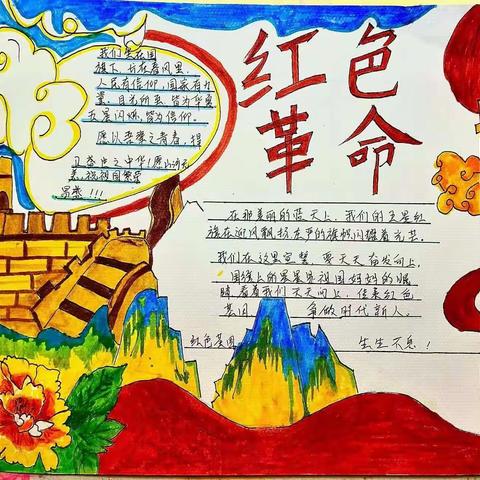 红色
革命
我们生在国
旗下，长在春风里，
人民有信仰，国家有力
量，目光所至，皆为华夏
五星闪烁，皆为信仰。
愿以吾辈之青春，捍
卫盛世之中华！
祝祖国繁荣
昌盛！！！
在那美丽的蓝天上，我们的五星红
旗在迎风飘扬
我们在这里宣誓，要天天奋发向上，
国旗上的星星是祖国妈妈的眼
睛看着我们天天向上，传承红色
基因 争做时代新人。
红色基因 生生不息！